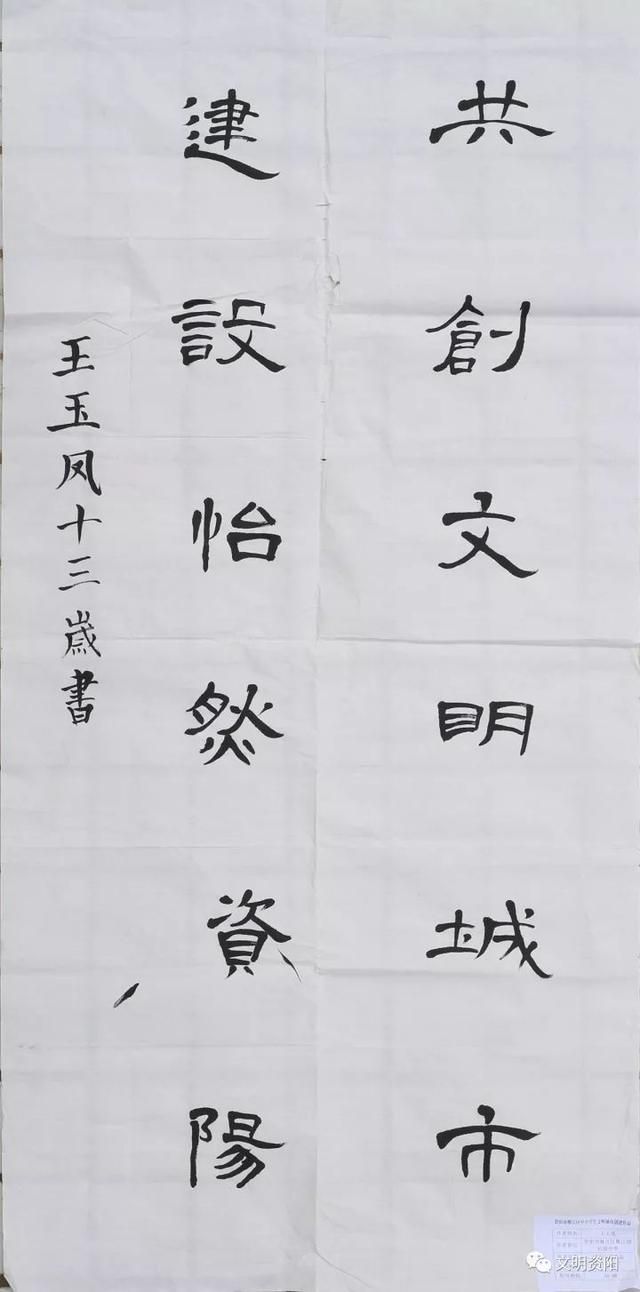 共創文明城市
建設怡然資陽
王玉凤十三歲書
文明资阳